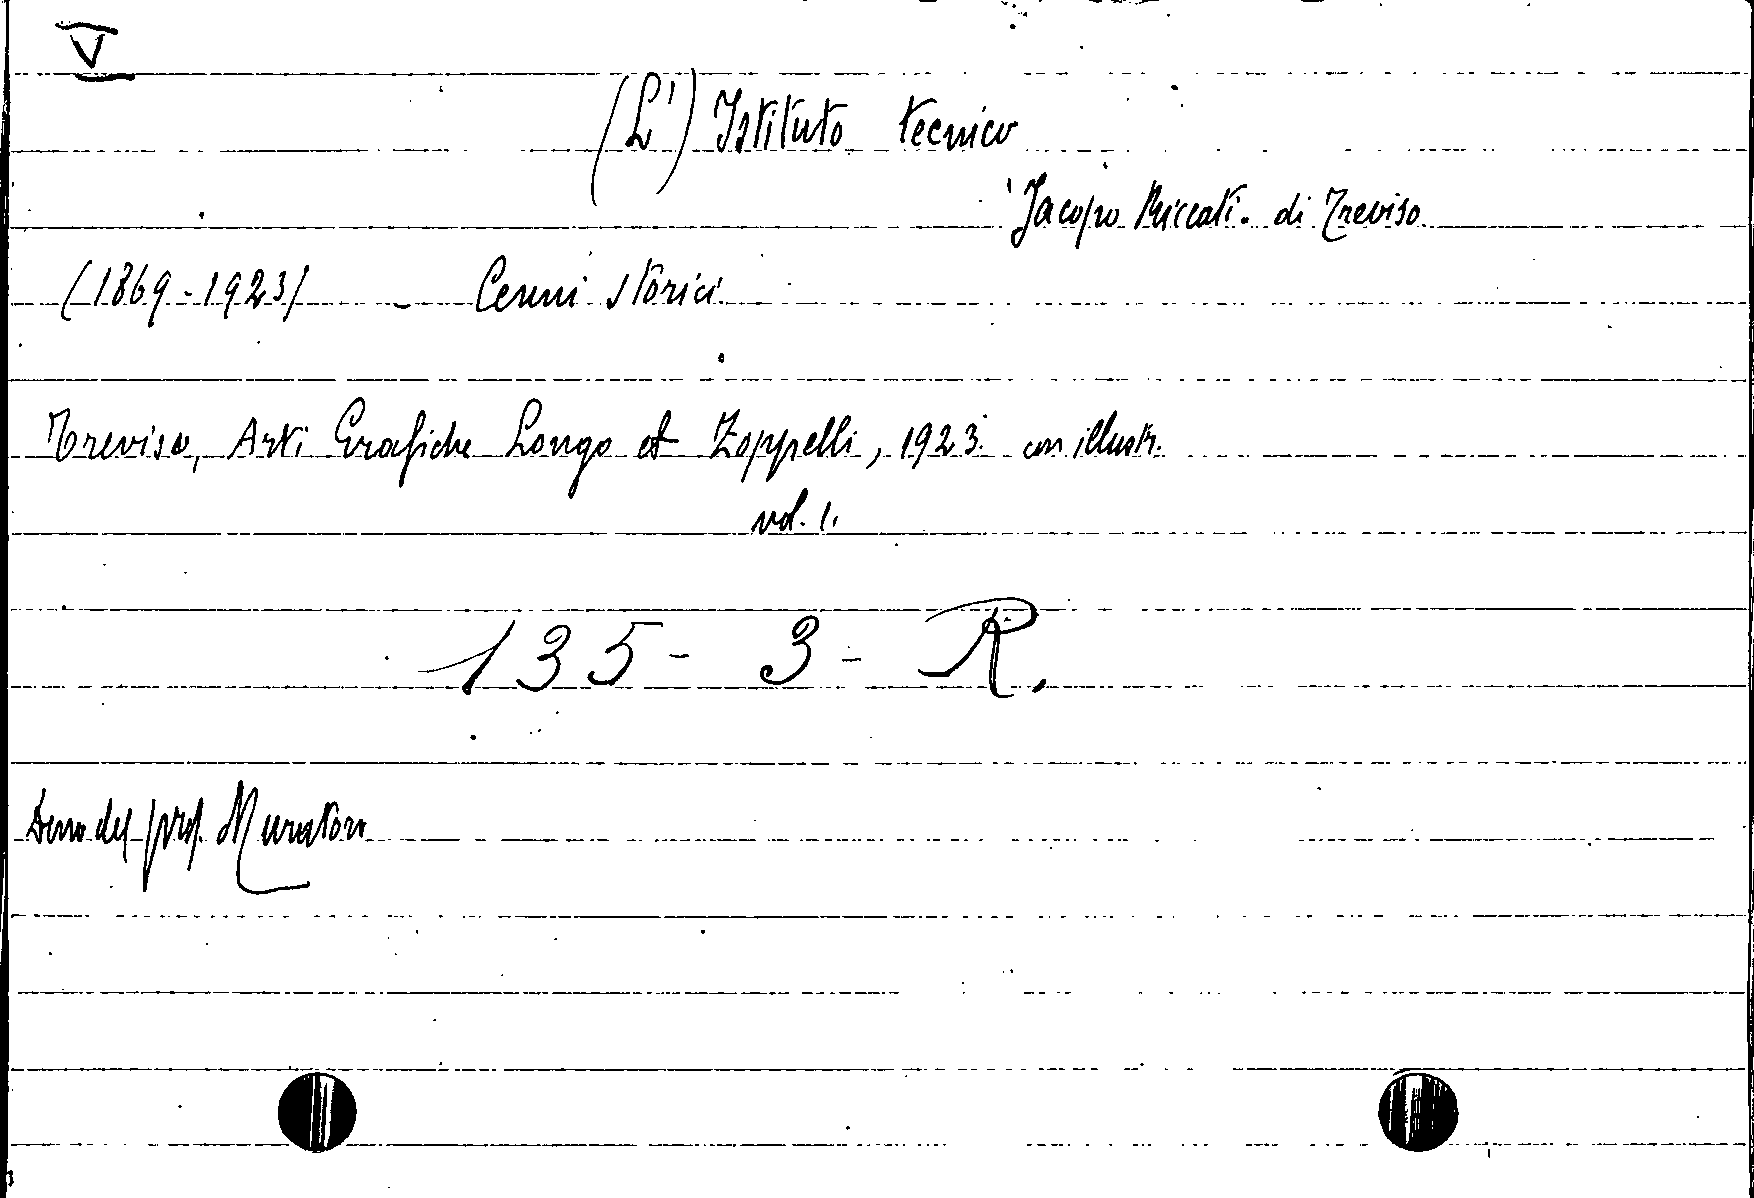 V
(L') Istituto tecnico
"Jacopo Riccati" di Treviso
(1869-1923) - Cenni storici
Treviso, Arti Grafiche Longo et Zoppelli, 1923. con illustr.
vol. 1.
135 - 3 - R.
Dono del prof. Muratore